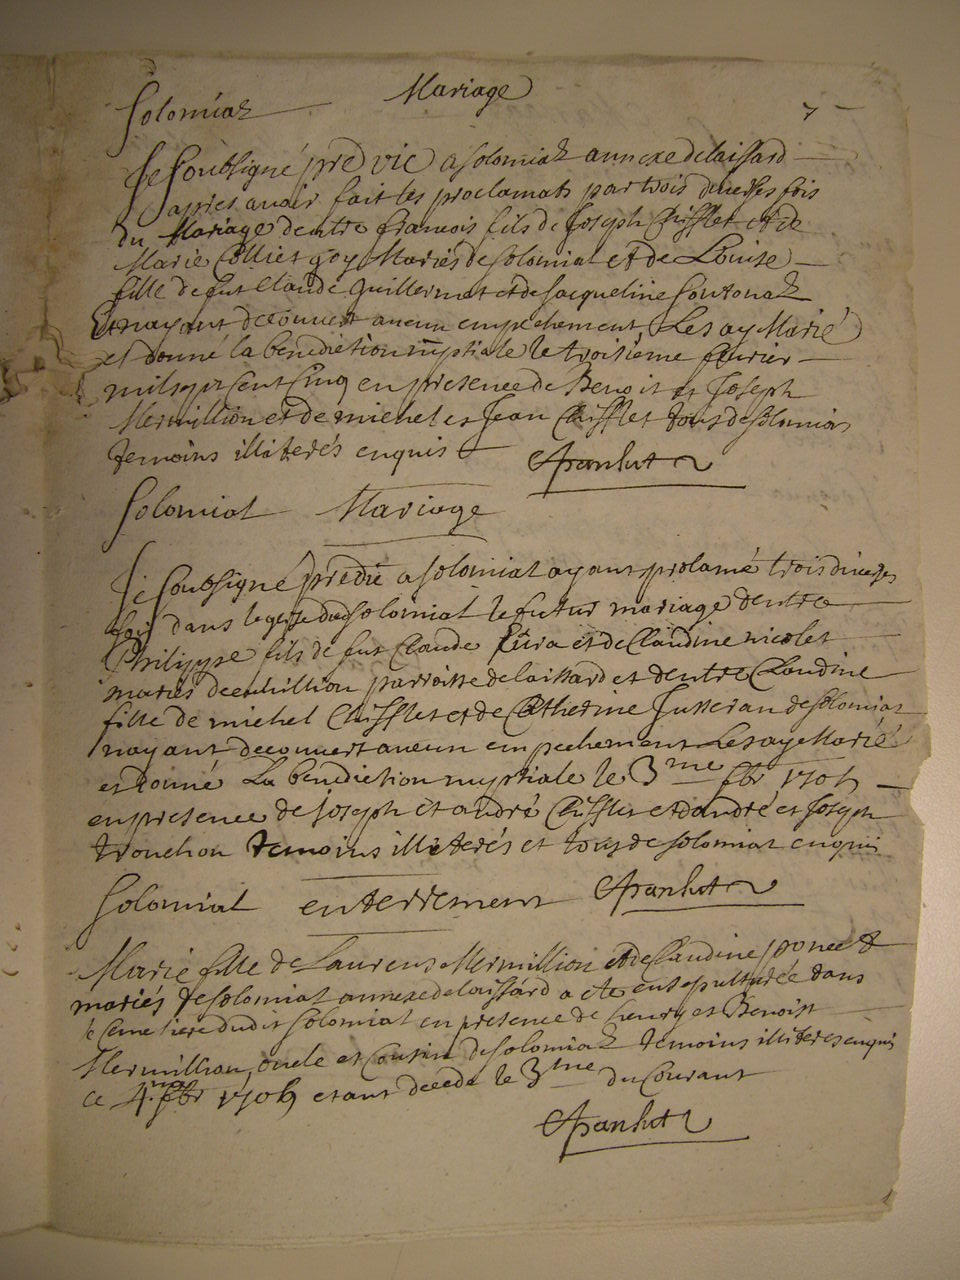 Solomiat Mariage 7
Je Soubsigné pred vic a solomiat annexe de laissard
apres avoir fait les proclamats par trois diverses fois
du Mariage dentre francois fils de Joseph Chifflet et de
Marie Collet goy Mariés de solomiat et de Louise
fille de fut Claude Guillermet et de Jacqueline soutonat
Et nayant decouvert aucun empechement, Les ay Marié
et donné la benediction nuptiale le troisieme fevrier
mil sept cent Cinq en presence de Benoit et Joseph
Mermillion et de michel et Jean Chifflet tous de solomiat
temoins illiterés enquis
Solomiat Mariage
Je Soubsigné predic a solomiat ayant prolamé trois diverses
fois dans leglise dud solomiat le futur mariage dentre
Philippe fils de fut Claude et de Claudine nicolet
mariés parroisse de laissard et dentre Claudine
fille de michel Chifflet et de Catherine Jusseran de solomiat
nayant decouvert aucun empechement Les ay Marié
et donné La benediction nuptiale le 3me fbr 1705
en presence de Joseph et andré Chifflet et dandré et Joseph
trouchon temoins illiterés et tous de solomiat enquis
Solomiat enterrement
Marie fille de Laurens Mermillion et de Claudine poncet
mariés de solomiat annexe de laissard a ete ensepulturée dans
le Cemetiere dudit solomiat en presence de henry et Benoist
Mermillion, oncle et Cousin de solomiat temoins illiteres enquis
ce 4me fbr 1705 etant decede le 3me du Courant